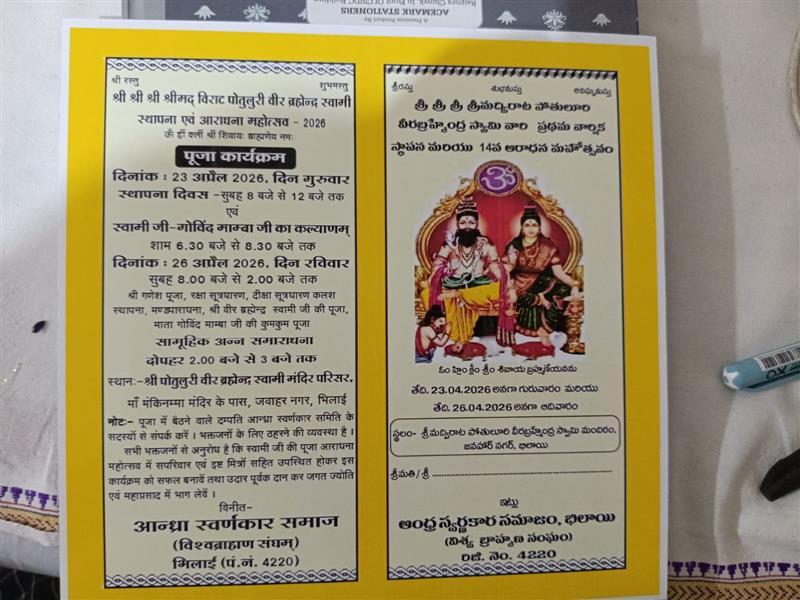 A Premium Product By
ACEMARK STATIONERS
श्री रस्तु
शुभमस्तु
श्री श्री श्री श्रीमद् विराट पोतुलुरी वीर ब्रह्मेन्द्र स्वामी
स्थापना एवं आराधना महोत्सव - 2026
ऊँ ह्रीं क्लीं श्रीं शिवायः ब्राह्मणेय नमः
पूजा कार्यक्रम
दिनांक : 23 अप्रैल 2026, दिन गुरुवार
स्थापना दिवस - सुबह 8 बजे से 12 बजे तक
एवं
स्वामी जी-गोविंद माम्बा जी का कल्याणम्
शाम 6.30 बजे से 8.30 बजे तक
दिनांक : 26 अप्रैल 2026, दिन रविवार
सुबह 8.00 बजे से 2.00 बजे तक
श्री गणेश पूजा, रक्षा सूत्रधारण, दीक्षा सूत्रधारण कलश
स्थापना, मण्डपाराधना, श्री वीर ब्रह्मेन्द्र स्वामी जी की पूजा,
माता गोविंद माम्बा जी की कुमकुम पूजा
सामूहिक अन्न समाराधना
दोपहर 2.00 बजे से 3 बजे तक
स्थानः-श्री पोतुलुरी वीर ब्रह्मेन्द्र स्वामी मंदिर परिसर,
माँ मंकिनम्मा मंदिर के पास, जवाहर नगर, भिलाई
नोटः- पूजा में बैठने वाले दम्पति आन्ध्रा स्वर्णकार समिति के
सदस्यों से संपर्क करें । भक्तजनों के लिए ठहरने की व्यवस्था है ।
सभी भक्तजनों से अनुरोध है कि स्वामी जी की पूजा आराधना
महोत्सव में सपरिवार एवं इष्ट मित्रों सहित उपस्थित होकर इस
कार्यक्रम को सफल बनावें तथा उदार पूर्वक दान कर जगत ज्योति
एवं महाप्रसाद में भाग लेवें ।
विनीत-
आन्ध्रा स्वर्णकार समाज
(विश्वब्राह्मण संघम्)
भिलाई (पं.नं. 4220)
శ్రీరస్తు
శుభమస్తు
అవిఘ్నమస్తు
శ్రీ శ్రీ శ్రీ శ్రీమద్విరాట పోతులూరి
వీరబ్రహ్మేంద్ర స్వామి వారి ప్రథమ వార్షిక
స్థాపన మరియు 14వ ఆరాధన మహోత్సవం
ॐ
ఓం హ్రీం క్లీం శ్రీం శివాయ బ్రహ్మణేయనమ
తేది. 23.04.2026 అనగా గురువారం మరియు
తేది. 26.04.2026 అనగా ఆదివారం
స్థలం- శ్రీమద్విరాట పోతులూరి వీరబ్రహ్మేంద్ర స్వామి మందిరం,
జవహార్ నగర్, భిలాయి
శ్రీమతి / శ్రీ
ఇట్లు
ఆంధ్ర స్వర్ణకార సమాజం, భిలాయి
(విశ్వ బ్రాహ్మణ సంఘం)
రిజి. నెం. 4220